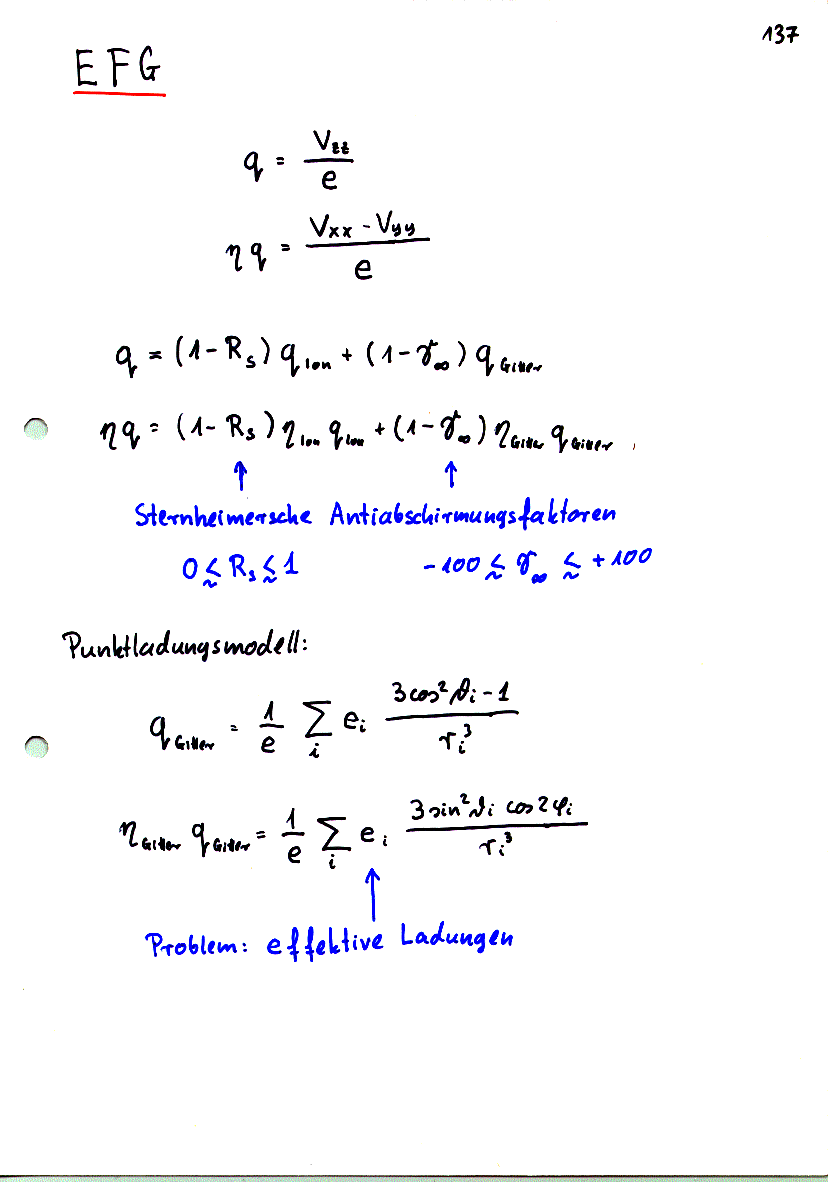 137
EFG
q = V_zz / e
ηq = (V_xx - V_yy) / e
q = (1 - R_s) q_Ion + (1 - γ_∞) q_Gitter
ηq = (1 - R_s) η_Ion q_Ion + (1 - γ_∞) η_Gitter q_Gitter ,
↑ ↑
Sternheimersche Antiabschirmungsfaktoren
0 ≲ R_s ≲ 1 -100 ≲ γ_∞ ≲ +100
Punktladungsmodell:
q_Gitter = 1/e ∑_i e_i (3cos²ϑ_i - 1) / r_i³
η_Gitter q_Gitter = 1/e ∑_i e_i (3 sin²ϑ_i cos 2φ_i) / r_i³
↑
Problem: effektive Ladungen